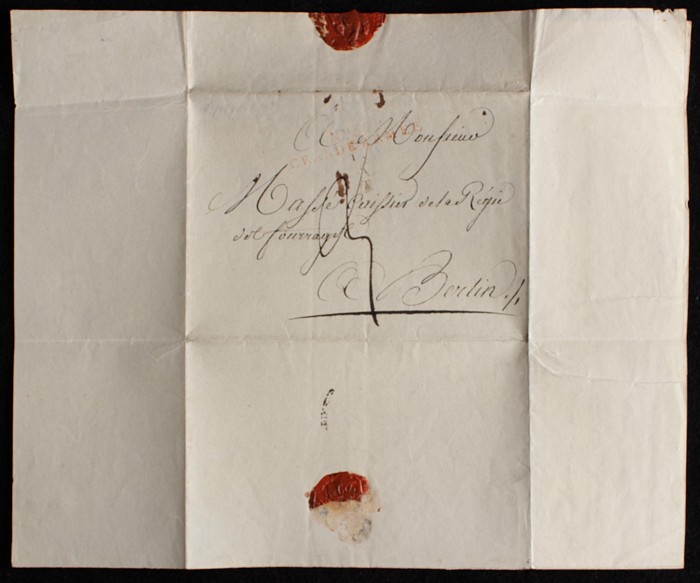 A Monsieur
Masse Caissier de la Régie
des fourrages
A Berlin ./.